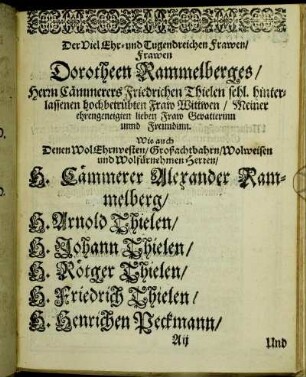 Der Viel Ehr- und Tugendreichen Frawen/
Frawen
Dorotheen Rammelberges/
Herrn Cämmerers Friedrichen Thielen sehl. hinter-
lassenen hochbetrübten Fraw Wittwen / Meiner
ehrengeneigten lieben Fraw Gevatterinn
unnd Freundinn.
Wie auch
Denen WolEhrnvesten/ Großachtbahrn/ Wolweisen
und Wolfürnehmen Herren/
H. Cämmerer Alexander Ram-
melberg/
H. Arnold Thielen/
H. Johann Thielen/
H. Rötger Thielen/
H. Friedrich Thielen/
H. Henrichen Peckmann/
Aij
Und